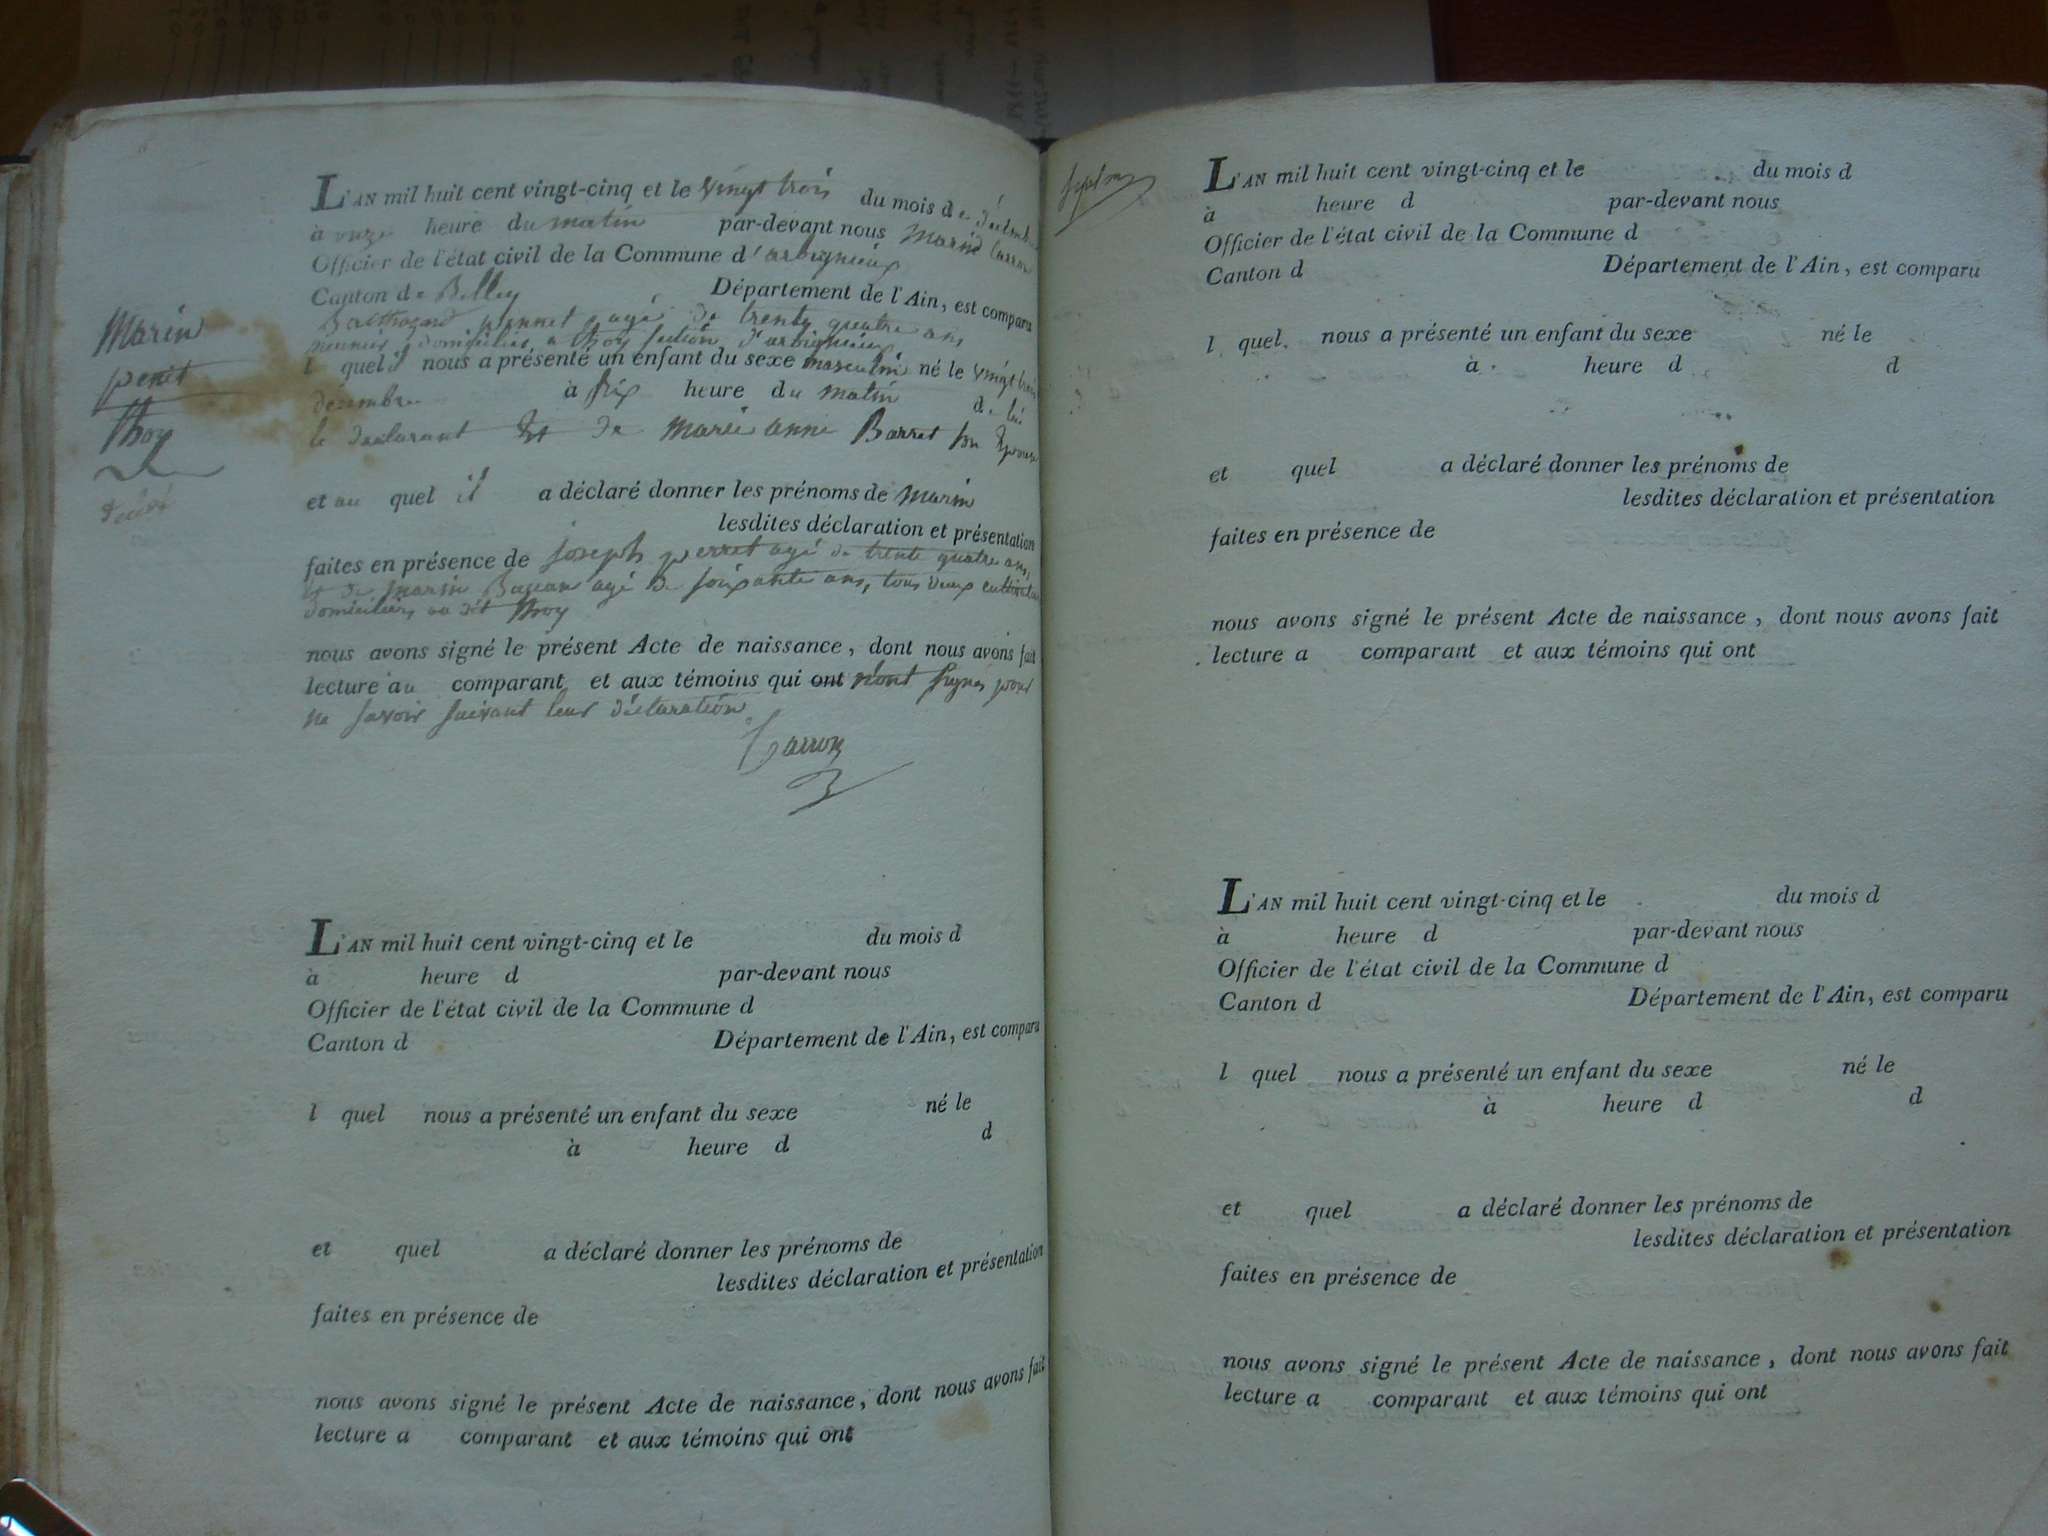 Marin
Thoy
L'AN mil huit cent vingt-cinq et le vingt trois du mois de décembre
à onze heure du matin par-devant nous Marin Carron
Officier de l'état civil de la Commune d'arbignieux
Canton de Belley Département de l'Ain, est comparu
agé de trente quatre ans
domicilié a Thoy section d'arbignieux
l quel nous a présenté un enfant du sexe masculin né le vingt trois
decembre à six heure du matin de lui
le declarant Et de Marie anne Barret son Epouse
et au quel il a déclaré donner les prénoms de Marin
lesdites déclaration et présentation
faites en présence de joseph perret agé de trente quatre ans,
Et de Marin agé de soixante ans, tous deux cultivateurs
domiciliés au dit Thoy
nous avons signé le présent Acte de naissance, dont nous avons fait
lecture au comparant et aux témoins qui ont n'ont signés pour
ne savoir suivant leur déclaration
Carron
L'AN mil huit cent vingt-cinq et le du mois d
à heure d par-devant nous
Officier de l'état civil de la Commune d
Canton d Département de l'Ain, est comparu
l quel nous a présenté un enfant du sexe né le
à heure d d
et quel a déclaré donner les prénoms de
lesdites déclaration et présentation
faites en présence de
nous avons signé le présent Acte de naissance, dont nous avons fait
lecture a comparant et aux témoins qui ont
L'AN mil huit cent vingt-cinq et le du mois d
à heure d par-devant nous
Officier de l'état civil de la Commune d
Canton d Département de l'Ain, est comparu
l quel nous a présenté un enfant du sexe né le
à heure d d
et quel a déclaré donner les prénoms de
lesdites déclaration et présentation
faites en présence de
nous avons signé le présent Acte de naissance, dont nous avons fait
lecture a comparant et aux témoins qui ont
L'AN mil huit cent vingt-cinq et le du mois d
à heure d par-devant nous
Officier de l'état civil de la Commune d
Canton d Département de l'Ain, est comparu
l quel nous a présenté un enfant du sexe né le
à heure d d
et quel a déclaré donner les prénoms de
lesdites déclaration et présentation
faites en présence de
nous avons signé le présent Acte de naissance, dont nous avons fait
lecture a comparant et aux témoins qui ont